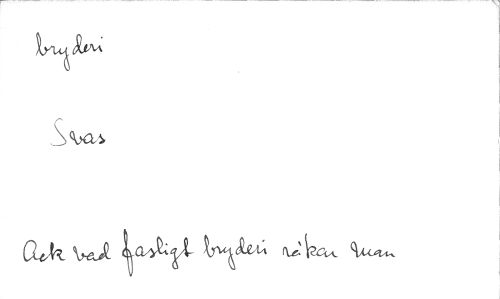 bryderi
Svas
Ack vad fasligt bryderi råkar man